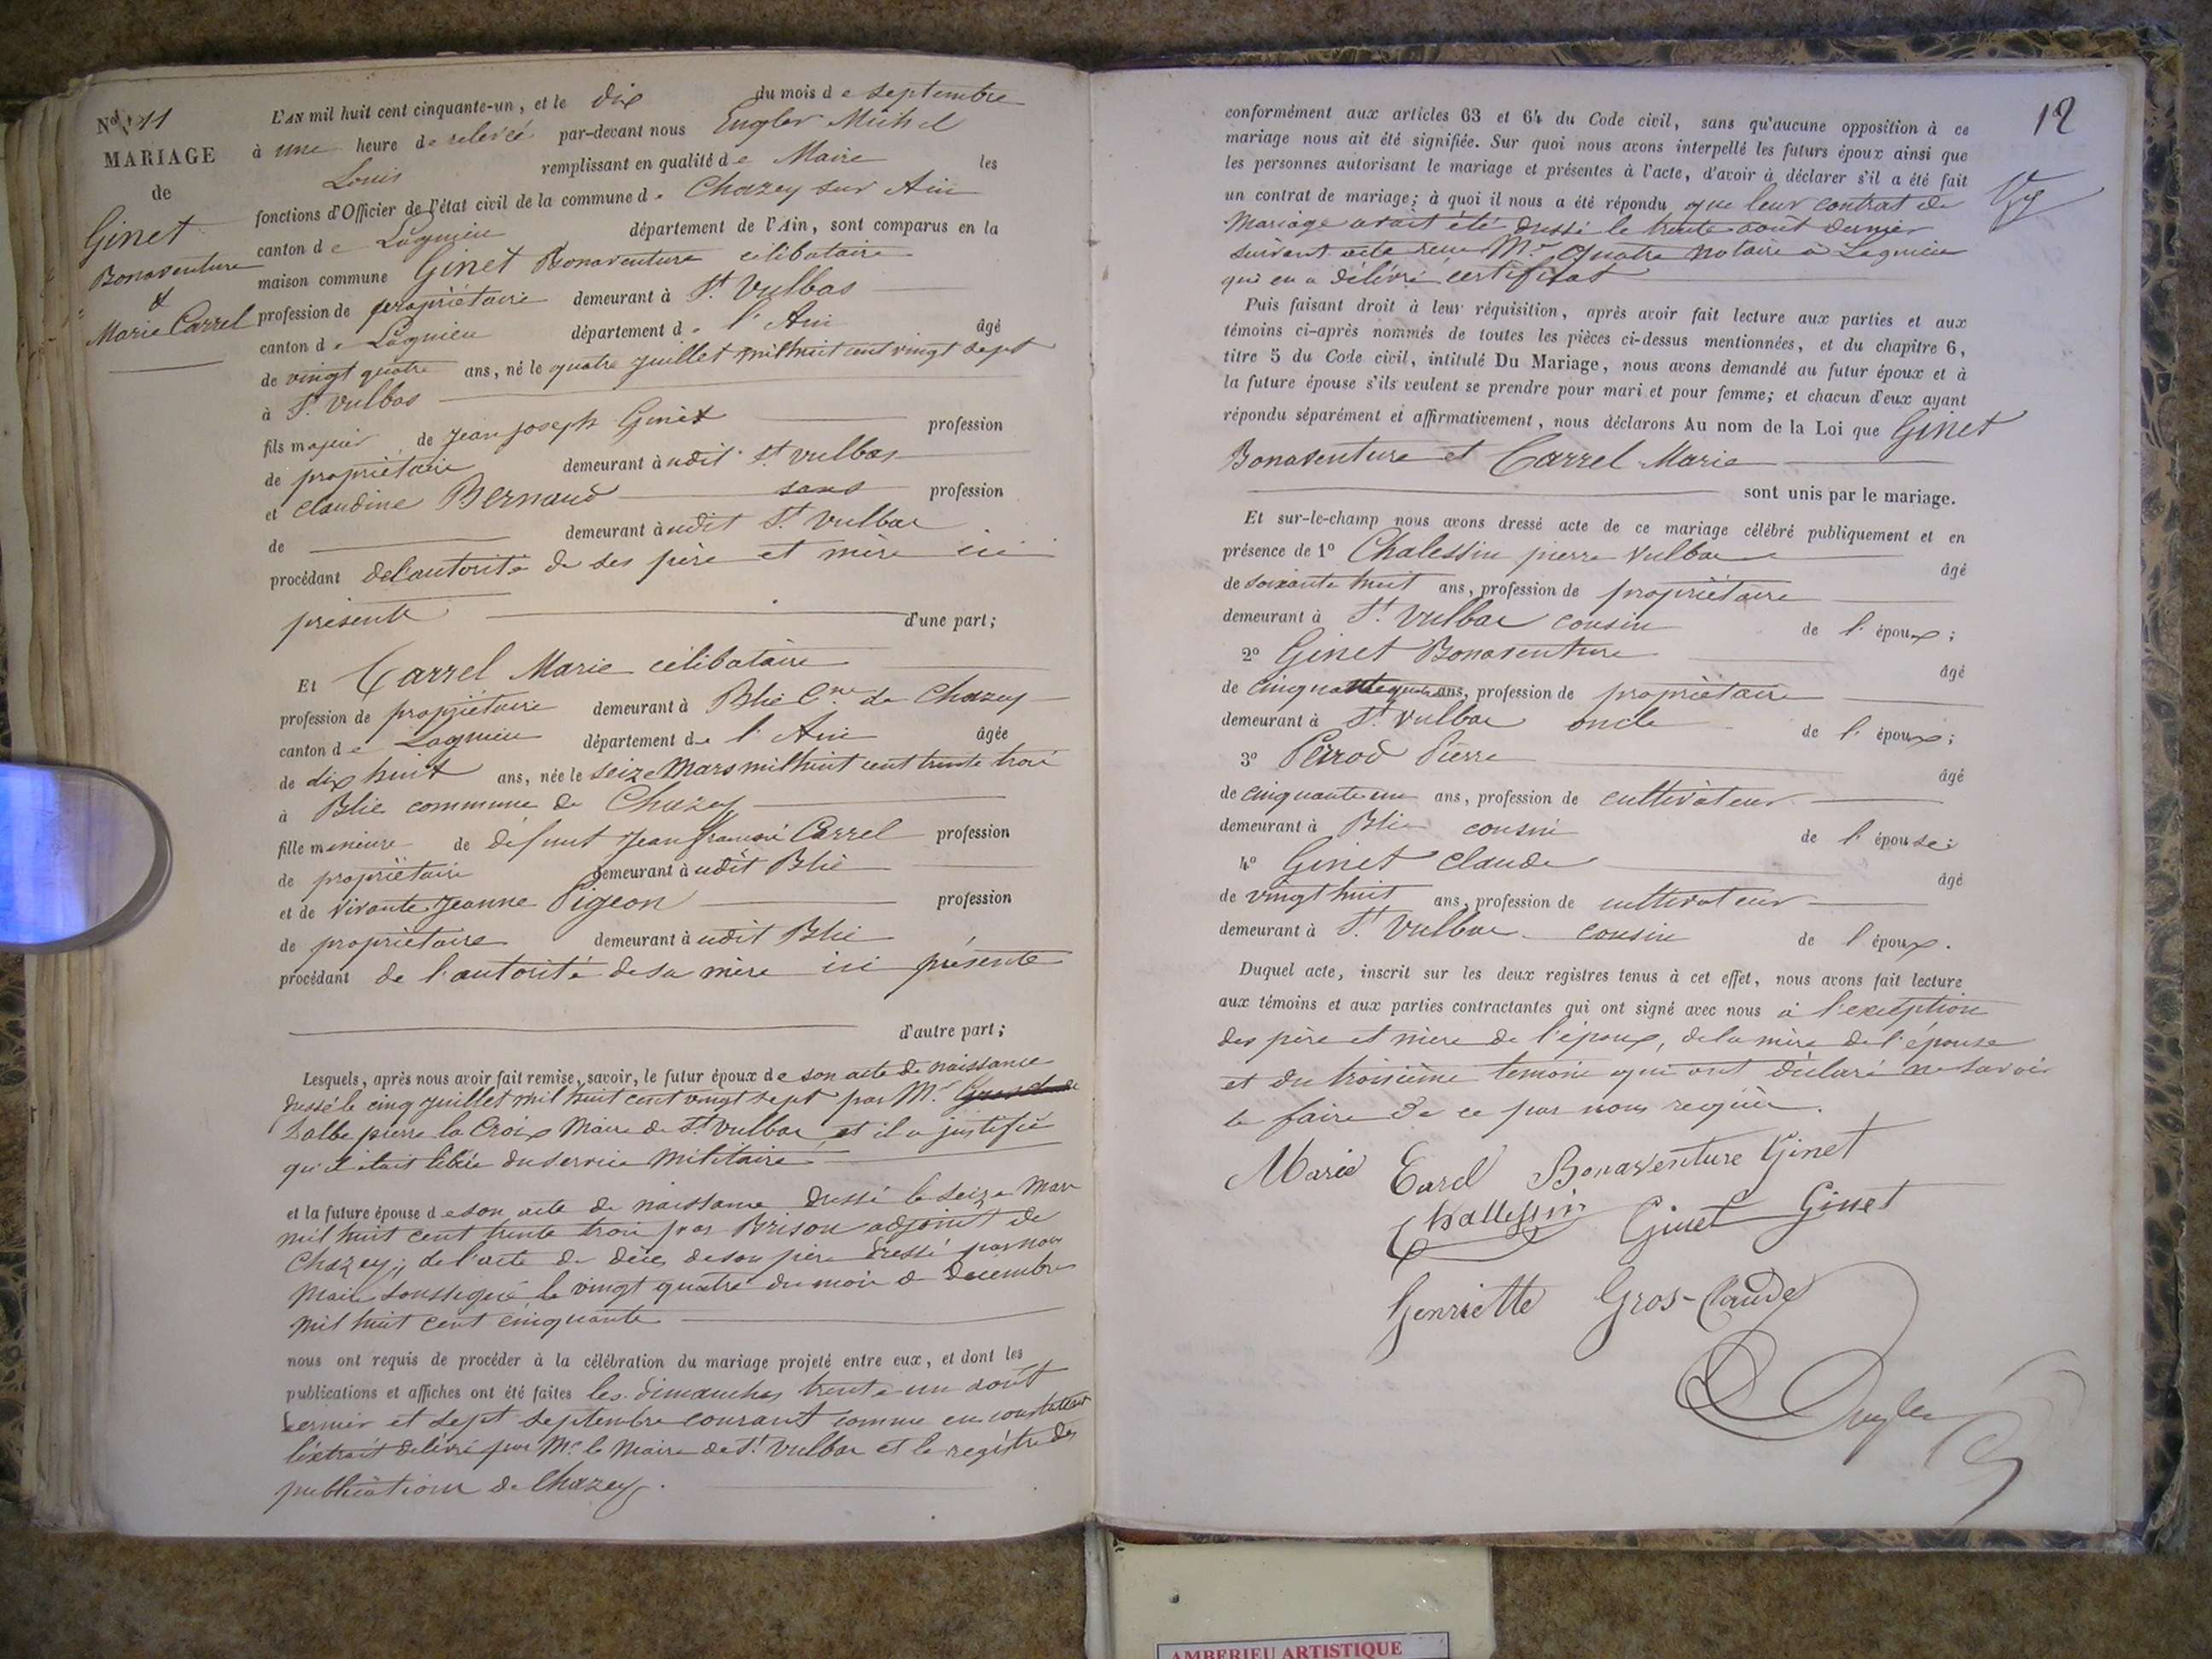 No 11
MARIAGE
de
Ginet
Bonaventure
&
Marie Carrel
L'AN mil huit cent cinquante-un, et le dix du mois de septembre
à une heure de relevée par-devant nous Engler Michel
Louis remplissant en qualité de Maire les
fonctions d'Officier de l'état civil de la commune de Chazey sur Ain
canton de Lagnieu département de l'Ain, sont comparus en la
maison commune Ginet Bonaventure célibataire
profession de propriétaire demeurant à St Vulbas
canton de Lagnieu département de l'Ain âgé
de vingt quatre ans, né le quatre juillet mil huit cent vingt sept
à St Vulbas
fils majeur de Jean Joseph Ginet profession
de propriétaire demeurant à udit St Vulbas
et Claudine Bernaud sans profession
de demeurant à udit St Vulbas
procédant de l'autorité de ses père et mère ici
présents d'une part;
Et Carrel Marie célibataire
profession de propriétaire demeurant à Blie Cne de Chazey
canton de Lagnieu département de l'Ain âgée
de dix huit ans, née le seize Mars mil huit cent trente trois
à Blie commune de Chazey
fille mineure de défunt Jean François Carrel profession
de propriétaire demeurant à udit Blie
et de vivante Jeanne Pigeon profession
de propriétaire demeurant à udit Blie
procédant de l'autorité de sa mère ici présente
d'autre part;
Lesquels, après nous avoir fait remise, savoir, le futur époux de son acte de naissance
dressé le cinq juillet mil huit cent vingt sept par Mr
Dalbe pierre la Croix Maire de St Vulbas et il a justifié
qu'il était libéré du service militaire
et la future épouse de son acte de naissance dressé le seize Mars
mil huit cent trente trois par Brison adjoint de
Chazey; de l'acte de décès de son père dressé par nous
Maire soussigné le vingt quatre du mois de décembre
mil huit cent cinquante
nous ont requis de procéder à la célébration du mariage projeté entre eux, et dont les
publications et affiches ont été faites les dimanches trente un août
dernier et sept septembre courant comme en constatent
l'extrait délivré par Mr le Maire de St Vulbas et le registre des
publications de Chazey.
12
conformément aux articles 63 et 64 du Code civil, sans qu'aucune opposition à ce
mariage nous ait été signifiée. Sur quoi nous avons interpellé les futurs époux ainsi que
les personnes autorisant le mariage et présentes à l'acte, d'avoir à déclarer s'il a été fait
un contrat de mariage; à quoi il nous a été répondu que leur contrat de
Mariage avait été dressé le trente août dernier
suivant acte reçu Mr Quatre notaire à Lagnieu
qui en a délivré certificat
Puis faisant droit à leur réquisition, après avoir fait lecture aux parties et aux
témoins ci-après nommés de toutes les pièces ci-dessus mentionnées, et du chapitre 6,
titre 5 du Code civil, intitulé Du Mariage, nous avons demandé au futur époux et à
la future épouse s'ils veulent se prendre pour mari et pour femme; et chacun d'eux ayant
répondu séparément et affirmativement, nous déclarons Au nom de la Loi que Ginet
Bonaventure et Carrel Marie
sont unis par le mariage.
Et sur-le-champ nous avons dressé acte de ce mariage célébré publiquement et en
présence de 1o Chalessin pierre Vulbas âgé
de soixante huit ans, profession de propriétaire
demeurant à St Vulbas cousin de l'époux;
2o Ginet Bonaventure âgé
de cinquante quatre ans, profession de propriétaire
demeurant à St Vulbas oncle de l'époux;
3o Perrod Pierre âgé
de cinquante un ans, profession de cultivateur
demeurant à Blie cousin de l'épouse;
4o Ginet Claude âgé
de vingt huit ans, profession de cultivateur
demeurant à St Vulbas cousin de l'époux.
Duquel acte, inscrit sur les deux registres tenus à cet effet, nous avons fait lecture
aux témoins et aux parties contractantes qui ont signé avec nous à l'exception
des père et mère de l'époux, de la mère de l'épouse
et du troisième témoin qui ont déclaré ne savoir
le faire de ce par nous requis.
Marie Carel Bonaventure Ginet
Challessin Ginet Ginet
Henriette Gros-Claude
Engler
AMBERIEU ARTISTIQUE